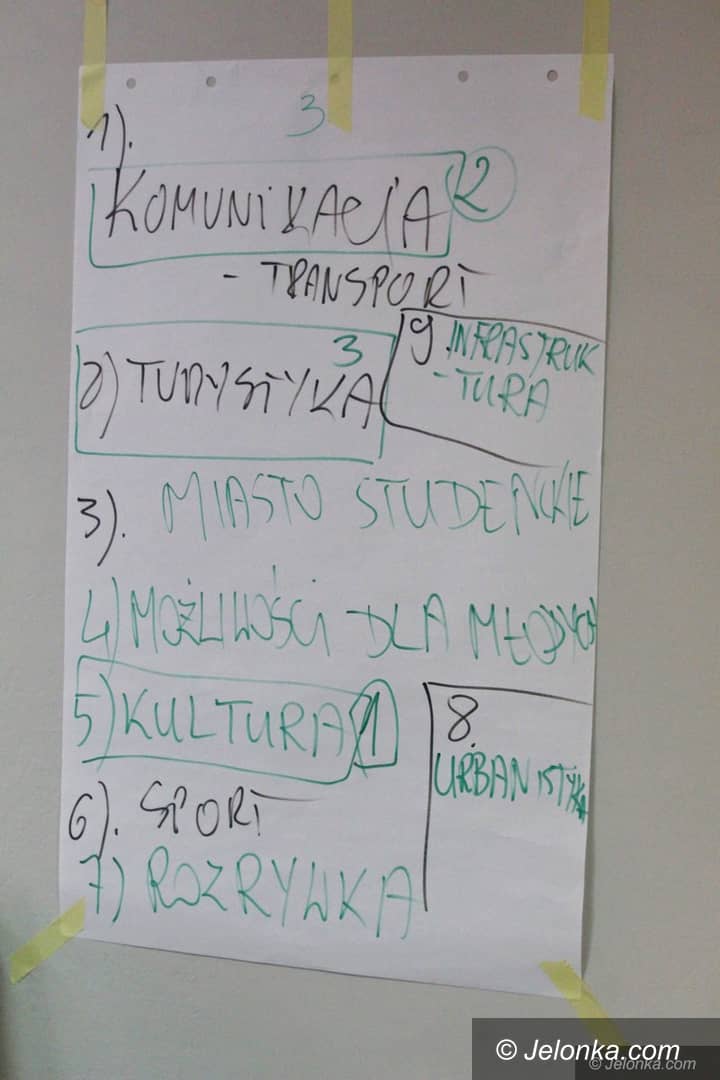 3
1).
KOMUNIKACJA 2
- TRANSPORT
2) TURYSTYKA 3
9. INFRASTRUK
- TURA
3). MIASTO STUDENCKIE
4) MOŻLIWOŚCI DLA MŁODYCH
5) KULTURA 1
8.
URBANISTYKA
6). SPORT
7) ROZRYWKA
© Jelonka.com
© Jelonka.com